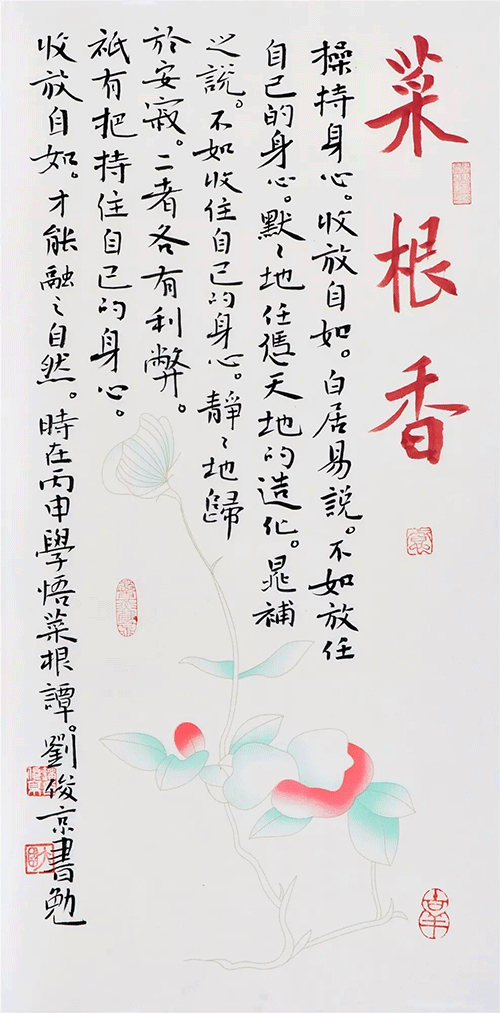 菜根香
操持身心。收放自如。白居易説。不如放任
自己的身心。默々地任憑天地的造化。晁補
之説。不如收住自己的身心。靜々地歸
於安寂。二者各有利弊。
祇有把持住自己的身心。
收放自如。才能融々自然。時在丙申學悟菜根譚。劉俊京書勉